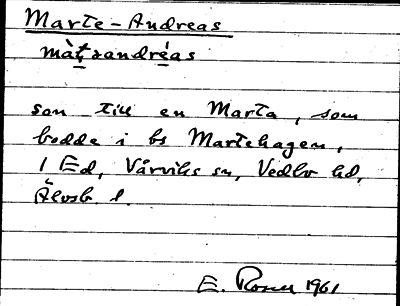 Marte-Andreas
màt̠andré̠as
son till en Marta, som
bodde i bs Martehagen,
1 Ed, Vårviks sn, Vedbo hd,
Älvsb l.
E. Rosen 1961